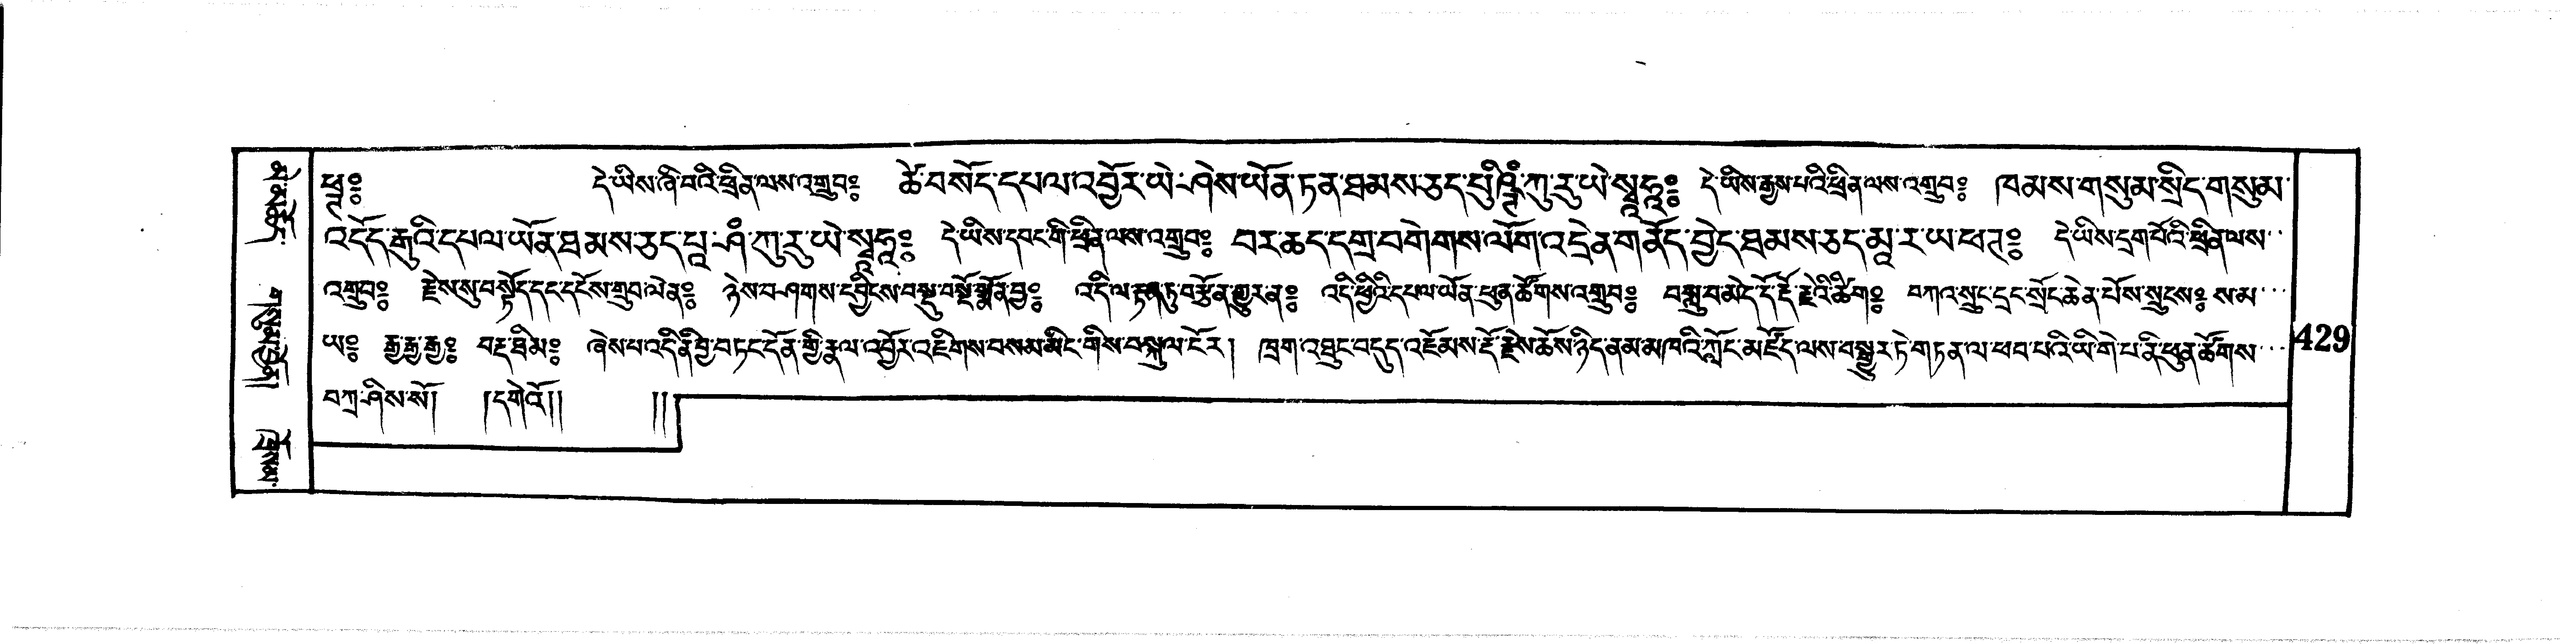 ཕཊ༔ དེ་ཡིས་ཞི་བའི་ཕྲིན་ལས་འགྲུབ༔ ཚེ་བསོད་དཔལ་འབྱོར་ཡེ་ཤེས་ཡོན་ཏན་ཐམས་ཅད་པུཥྚིཾ་ཀུ་རུ་ཡེ་སྭཱཧཱ༔ དེ་ཡིས་རྒྱས་པའི་ཕྲིན་ལས་འགྲུབ༔ ཁམས་གསུམ་སྲིད་གསུམ་
འདོད་རྒུའི་དཔལ་ཡོན་ཐམས་ཅད་པཱ་ཤཾ་ཀུ་རུ་ཡེ་སྭཱཧཱ༔ དེ་ཡིས་དབང་གི་ཕྲིན་ལས་འགྲུབ༔ བར་ཆད་དགྲ་བགེགས་ལོག་འདྲེན་གནོད་བྱེད་ཐམས་ཅད་མཱ་ར་ཡ་ཕཊ༔ དེ་ཡིས་དྲག་པོའི་ཕྲིན་ལས་
འགྲུབ༔ རྗེས་སུ་བསྟོད་དང་དངོས་གྲུབ་ལེན༔ ཉེས་བ་ཤགས་དབྱིངས་བསྡུ་བསྔོ་སྨོན་བྱ༔ འདི་ལ་རྟན་ཏུ་བརྩོན་གྱུར་ན༔ འདི་ཕྱིའི་དཔལ་ཡོན་ཕུན་ཚོགས་འགྲུབ༔ བསླུ་བ་མེད་དོ་རྡོ་རྗེའི་ཚིག༔ བཀའ་སྲུང་དྲང་སྲོང་ཆེན་པོས་སྲུངས༔ ས་མ་
ཡ༔ རྒྱ་རྒྱ་རྒྱ༔ བརྡ་ཐིམ༔ ཞེས་པ་འདི་ནི་བྱི་བཏང་དོན་གྱི་རྣལ་འབྱོར་འཇིགས་བསམ་མིང་གིས་བསྐུལ་ངོར། ཁྲག་འཐུང་བདུད་འཇོམས་རྡོ་རྗེས་ཆོས་ཉིད་ནམ་མཁའི་ཀློང་མཛོད་ལས་བསྒྱུར་ཏེ་གཏན་ལ་ཕབ་པའི་ཡི་གེ་པ་ནི་ཕུན་ཚོགས་
བཀྲ་ཤིས་སོ། །དགེའོ།། །།
429